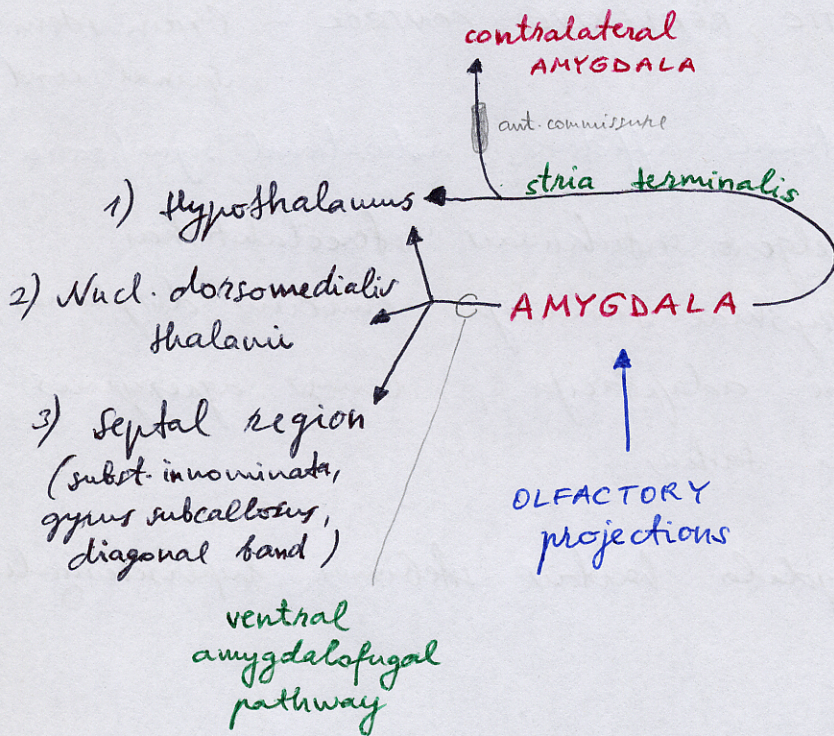 contralateral
AMYGDALA
ant. commissure
stria terminalis
1) Hypothalamus
2) Nucl. dorsomedialis
thalami
AMYGDALA
3) Septal region
(subst. innominata,
gyrus subcallosus,
diagonal band)
OLFACTORY
projections
ventral
amygdalofugal
pathway